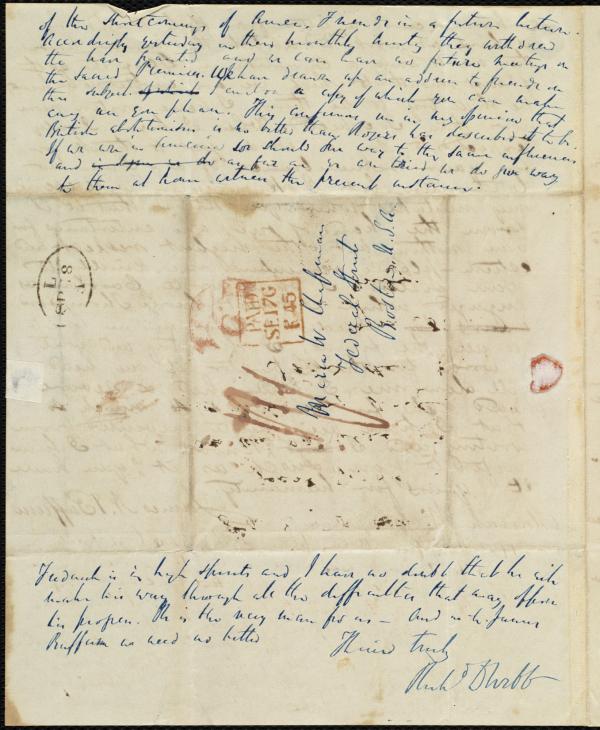 of the short comings of Amer. Friends in a future lecture.
Accordingly yesterday in their monthly meeting they withdrew
the leave granted and we can have no future meetings in
the Sacred Premises. We have drawn up an address to friends on
this subject. I send on a copy of which you can make
any use you please. This confirms me in my opinion that
British abolitionism is no better than Rogers has described it to be.
If we were in America we should give way to the same influences
and as far as we are tried we do give way
to them at home witness the present instance.
L
SP 8
PAID
SE 17 G
1845
Maria W. Chapman
Federal Street
Boston U.S.A.
Frederick is in high spirits and I have no doubt that he will
make his way through all the difficulties that may oppose
his progress. He is the very man for us - And with James
Buffum we need no better
Thine truly
Richd D Webb